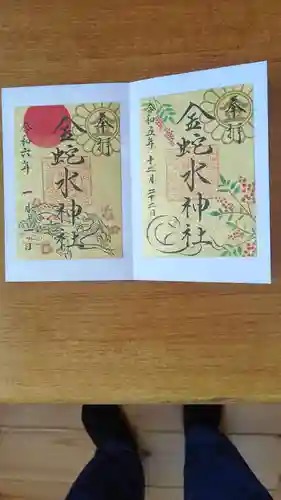 奉拝
金蛇水神社
令和五年 十二月 二十二日
奉拝
金蛇水神社
令和六年 一月